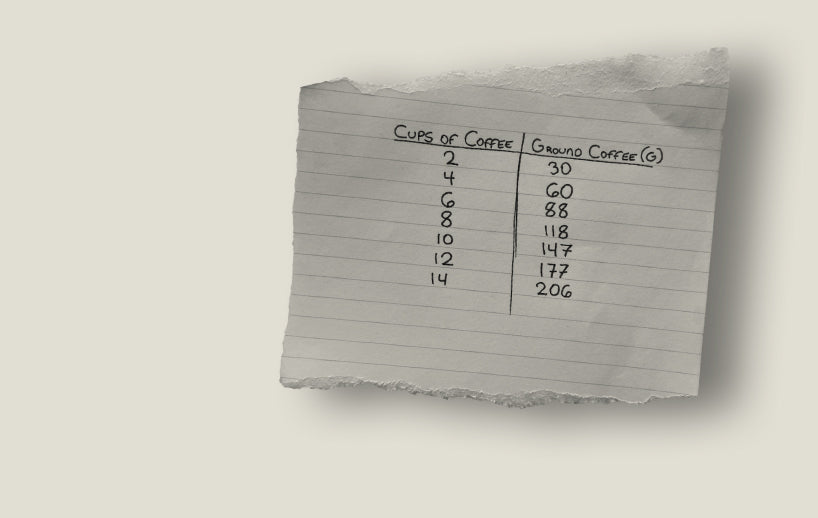 CUPS OF COFFEE GROUND COFFEE (G)
2 30
4 60
6 88
8 118
10 147
12 177
14 206